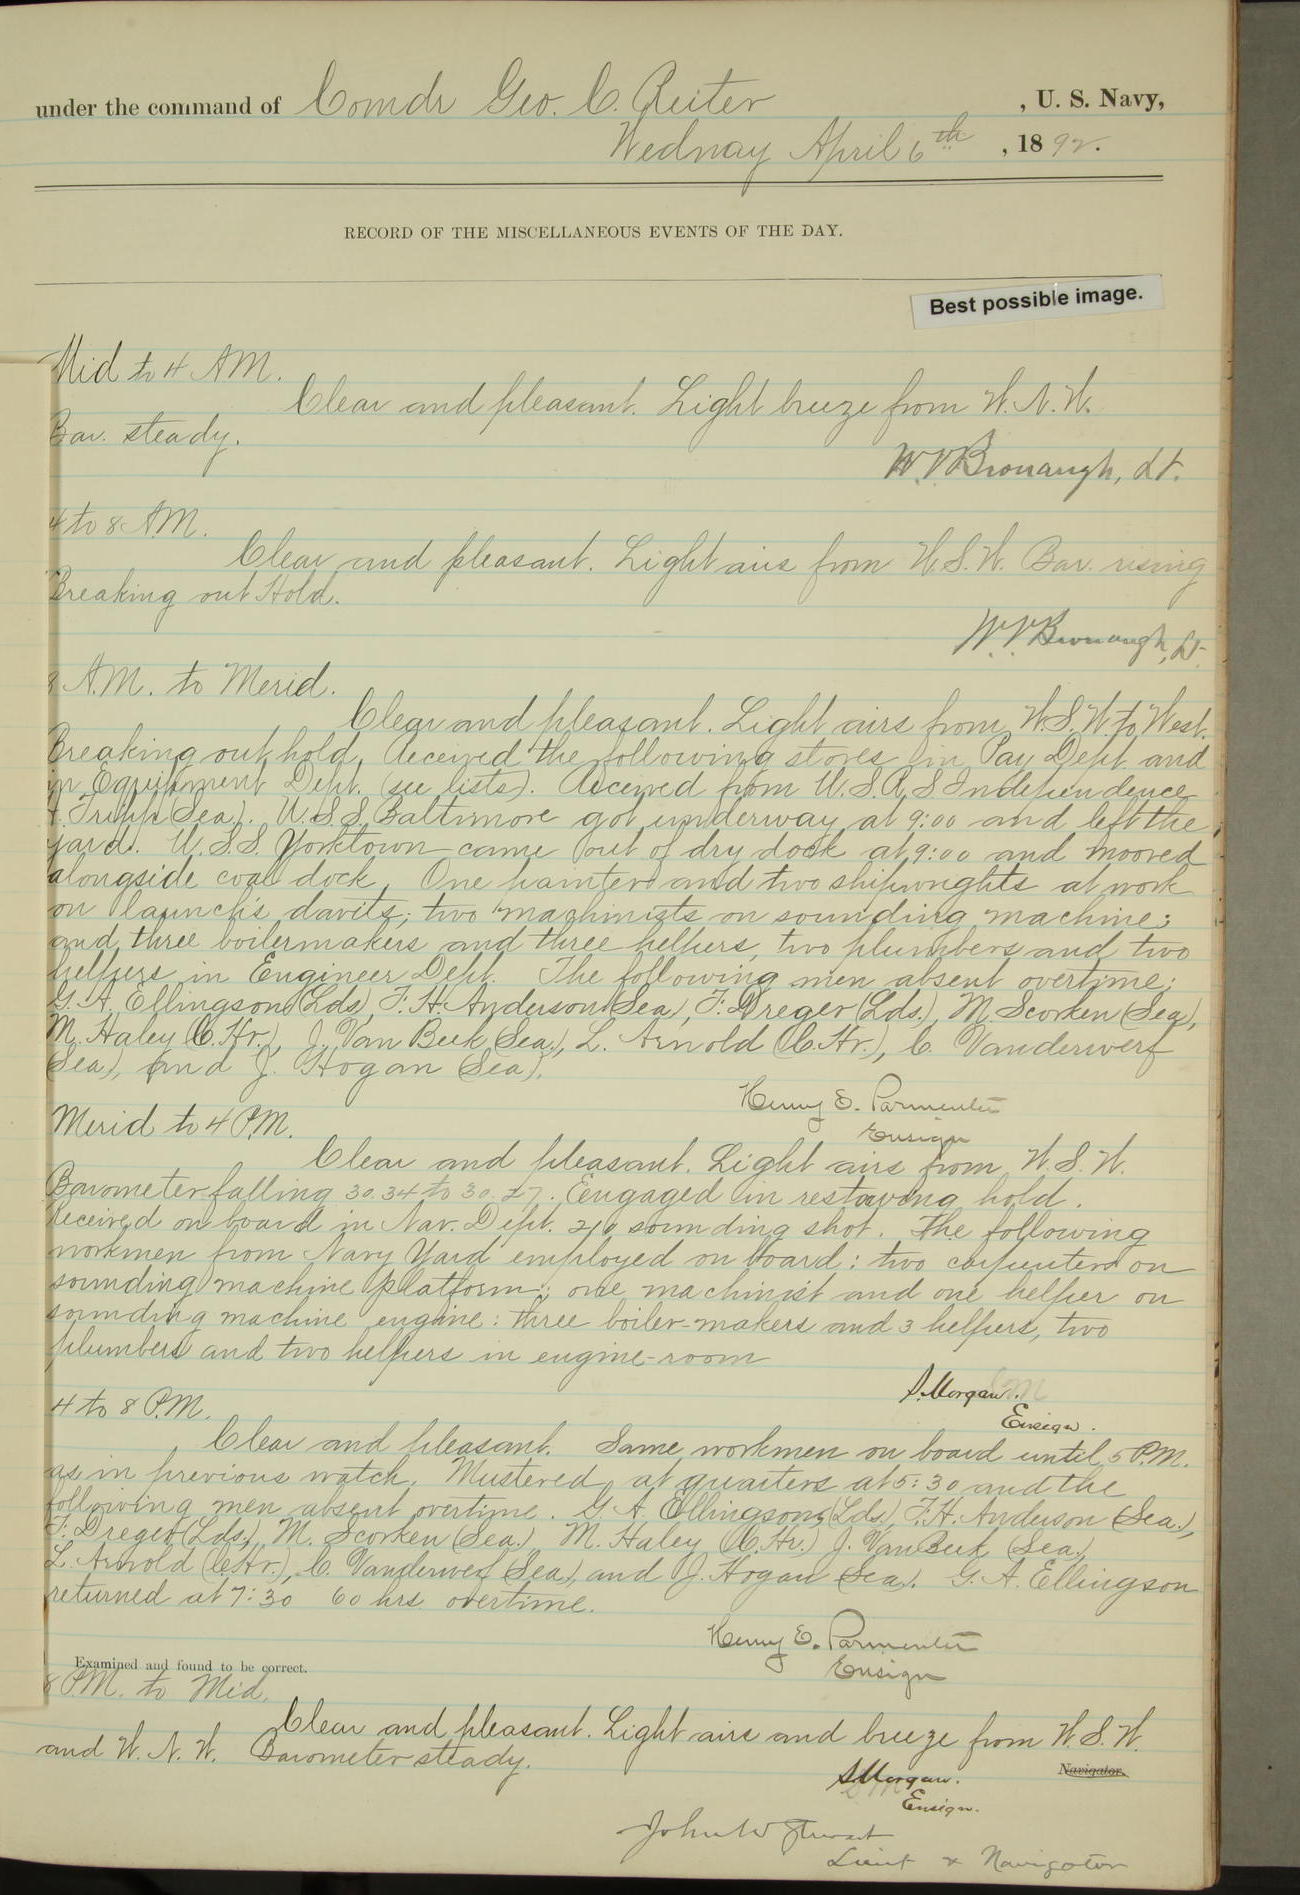 under the command of Comdr Geo. C. Reiter , U. S. Navy,
Wednay April 6th , 1892.
RECORD OF THE MISCELLANEOUS EVENTS OF THE DAY.
Best possible image.
Mid to 4 A.M.
Clear and pleasant. Light breeze from W.N.W.
Bar. steady.
W.V. Bronaugh, Lt.
4 to 8 A.M.
Clear and pleasant. Light airs from W.S.W. Bar. rising
Breaking out Hold.
W.V. Bronaugh, Lt.
8 A.M. to Merid.
Clear and pleasant. Light airs from W.S.W. to West.
Breaking out hold. Received the following stores in Pay Dept. and
in Equipment Dept. (see lists). Received from U.S.R.S Independence
Tripp (Sea). U.S.S. Baltimore got underway at 9:00 and left the
yard. U.S.S. Yorktown came out of dry dock at 9:00 and moored
alongside coal dock. One painter and two shipwrights at work
on launch's davits; two machinists on sounding machine;
and three boilermakers and three helpers, two plumbers and two
helpers in Engineer Dept. The following men absent overtime:
G. A. Ellingson (Lds), F. H. Anderson (Sea), F. Dreger (Lds.), M. Scorken (Sea),
M. Haley (C.Hr.), J. Van Beek (Sea.), L. Arnold (C.Hr.), C. Vanderwerf
(Sea), and J. Hogan (Sea).
Henry E. Parmenter
Ensign
Merid to 4 P.M.
Clear and pleasant. Light airs from W.S.W.
Barometer falling 30.34 to 30.27. Engaged in restowing hold.
Received on board in Nav. Dept. 210 sounding shot. The following
workmen from Navy Yard employed on board: two carpenters on
sounding machine platform; one machinist and one helper on
sounding machine engine: three boiler-makers and 3 helpers, two
plumbers and two helpers in engine-room
S. Morgan.
Ensign.
4 to 8 P.M.
Clear and pleasant. Same workmen on board until 5 P.M.
as in previous watch. Mustered at quarters at 5:30 and the
following men absent overtime. G. A. Ellingson, (Lds.), F. H. Anderson (Sea.),
F. Dreger (Lds.), M. Scorken (Sea.) M. Haley (C.Hr.) J. Van Beek (Sea.),
L. Arnold (C.Hr.), C. Vanderwerf (Sea), and J. Hogan (Sea). G. A. Ellingson
returned at 7:30 60 hrs overtime.
Henry E. Parmenter
Ensign
Examined and found to be correct.
8 P.M. to Mid.
Clear and pleasant. Light airs and breeze from W.S.W.
and W.N.W. Barometer steady.
Navigator.
S Morgan.
Ensign.
John W Stewart
Lieut & Navigator